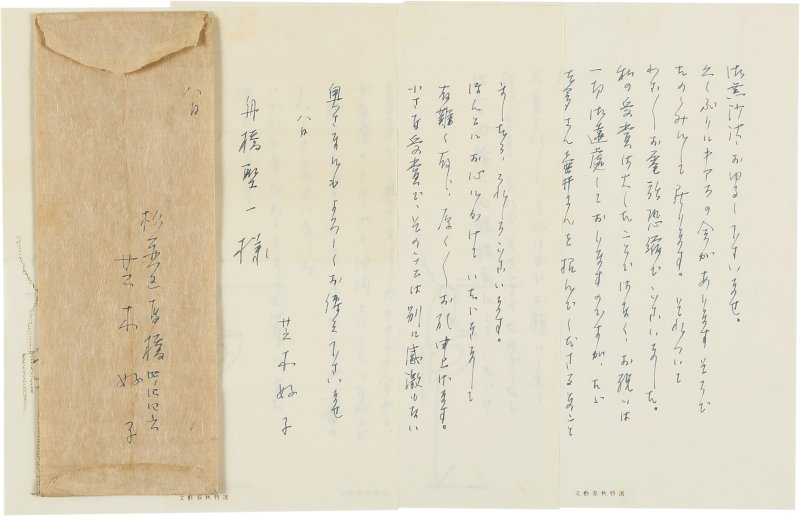 御無沙汰おゆるし下さいませ。
久しぶりにキアラの会があります そうで
たのしみにして居ります。それについて
わざ〳〵お電話恐縮でございました。
私の受賞は大したことではなく、お祝いは
一切御遠慮しておりますのですが、たゞ
さん壷井さんを
うれしうございます。
ほんとにお心にかけていたゞきまして
有難く存じ、厚く〳〵お礼申上げます。
小さな受賞で、そのことは別に感激もない
奥さまにもよろしくお伝え下さいませ
八日
芝木好子
舟橋聖一様
八日
杉並区高橋
芝木好子
文藝春秋特選
文藝春秋特選